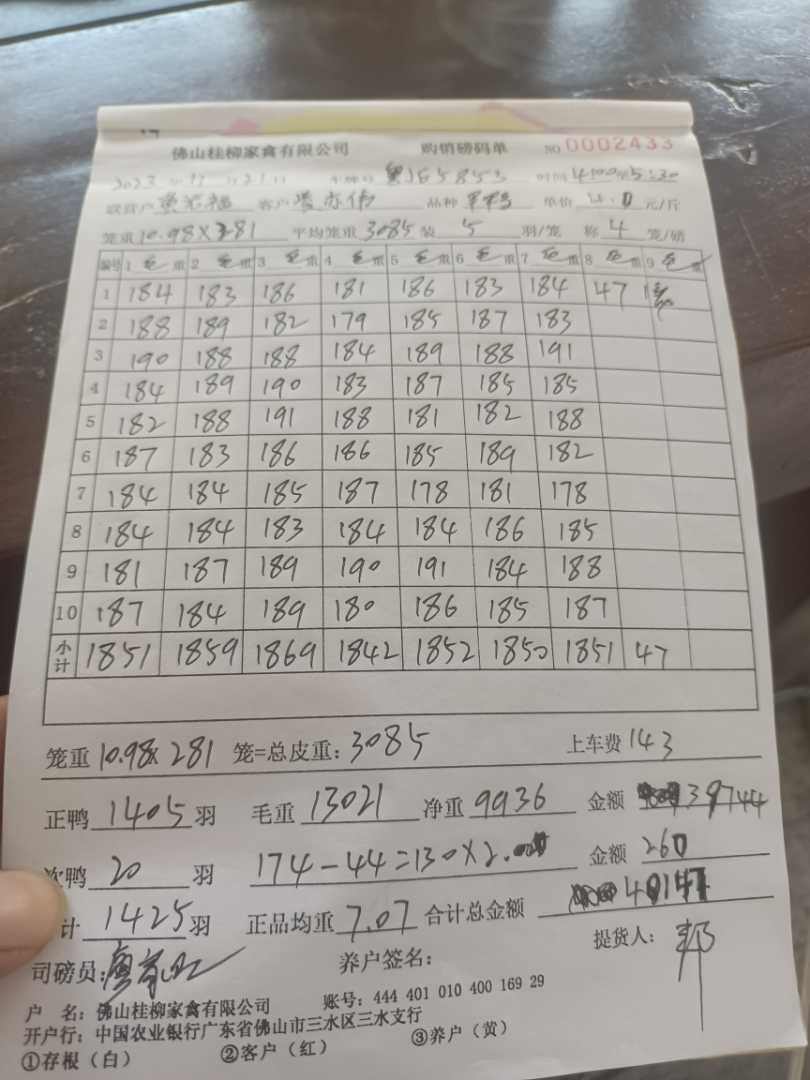 佛山桂柳家禽有限公司 购销磅码单 NO 0002433
2023 12 21日 车牌号 粤J65853 时间 4:00至5:30
联营户 客户 品种 单价 4.0 元/斤
笼重 10.98X281 平均笼重 3085 装 5 羽/笼 称 4 笼/磅
编号 1 毛重 2 毛重 3 毛重 4 毛重 5 毛重 6 毛重 7 毛重 8 毛重 9 毛重
1 184 183 186 181 186 183 184 47
2 188 189 182 179 185 187 183
3 190 188 188 184 189 188 191
4 184 189 190 183 187 185 185
5 182 188 191 188 181 182 188
6 187 183 186 186 185 189 182
7 184 184 185 187 178 181 178
8 184 184 183 184 184 186 185
9 181 187 189 190 191 184 188
10 187 184 189 180 186 185 187
小计 1851 1859 1869 1842 1852 1850 1851 47
笼重 10.98X281 笼=总皮重: 3085 上车费 143
正鸭 1405 羽 毛重 13021 净重 9936 金额 39744
次鸭 20 羽 174-44=130X2.0 金额 260
计 1425 羽 正品均重 7.07 合计总金额 40147
司磅员: 养户签名: 提货人: 邦
户 名: 佛山桂柳家禽有限公司 账号: 444 401 010 400 169 29
开户行: 中国农业银行广东省佛山市三水区三水支行
①存根(白) ②客户(红) ③养户(黄)